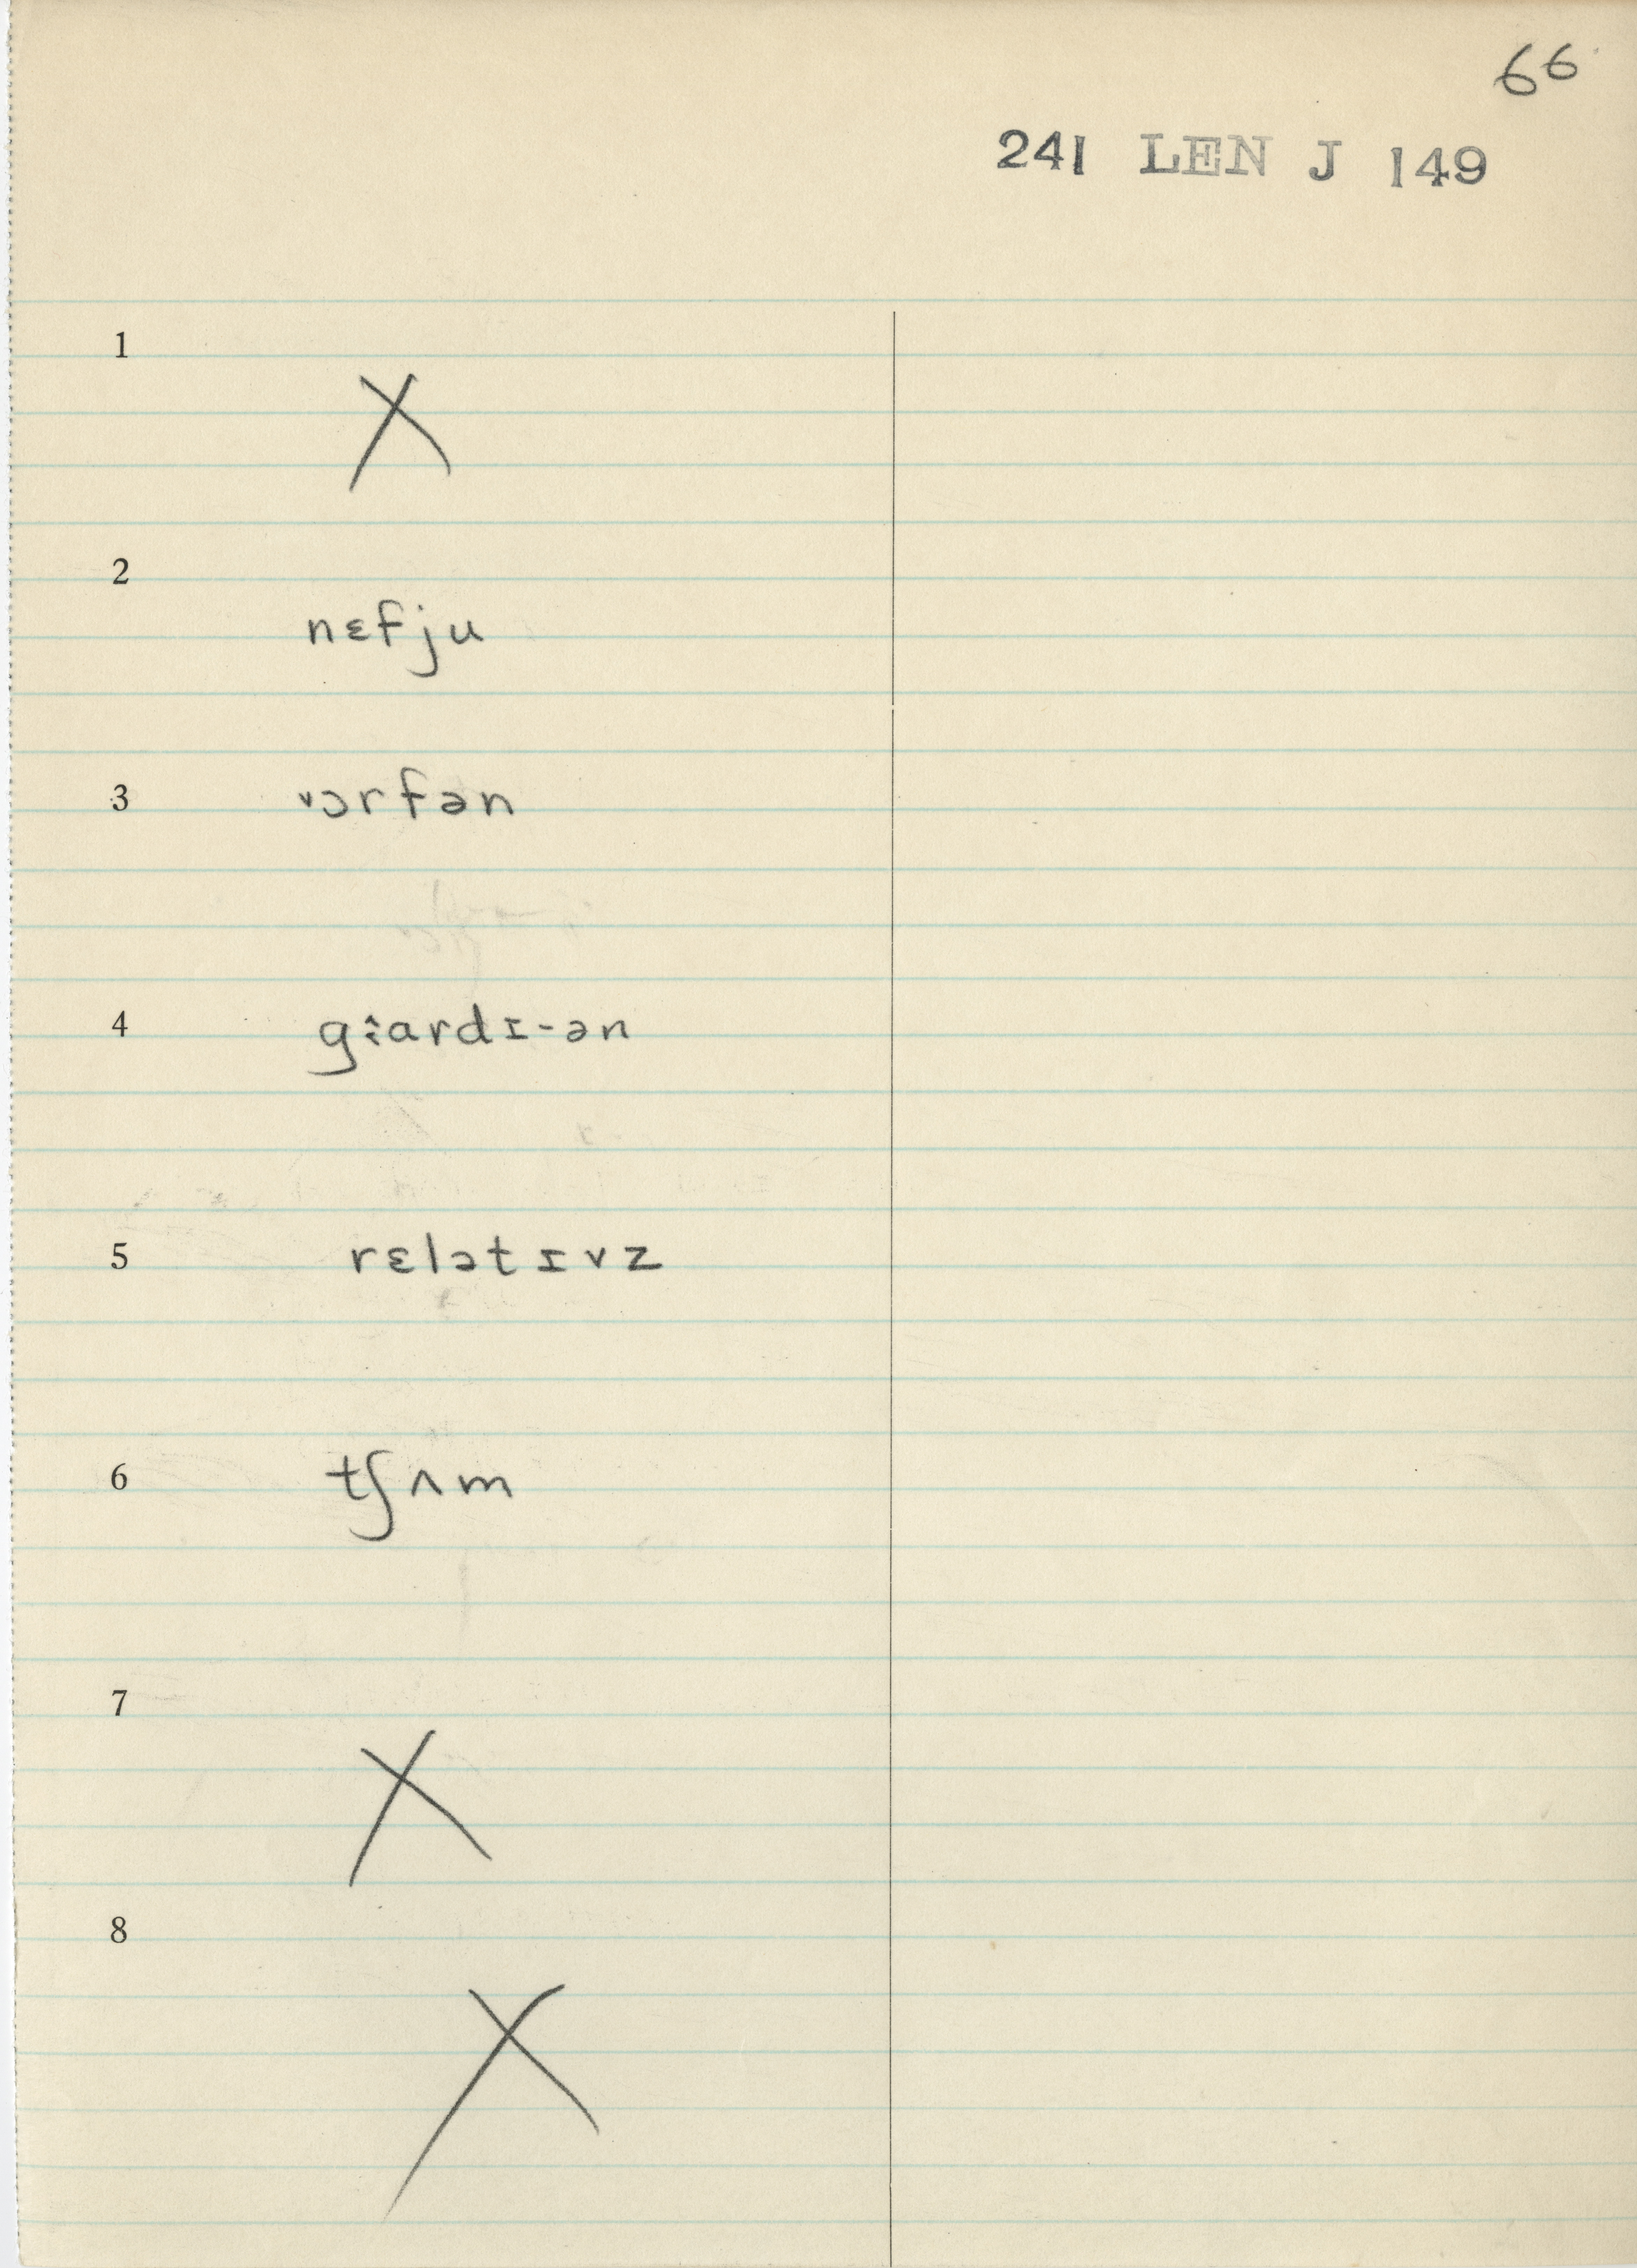 66
241 LEN J 149
1
X
2
nɛfju
3 ˅ɔrfən
4 gɪ̯ardɪ-ən
5 rɛlətɪvz
6 tʃʌm
7
X
8
X